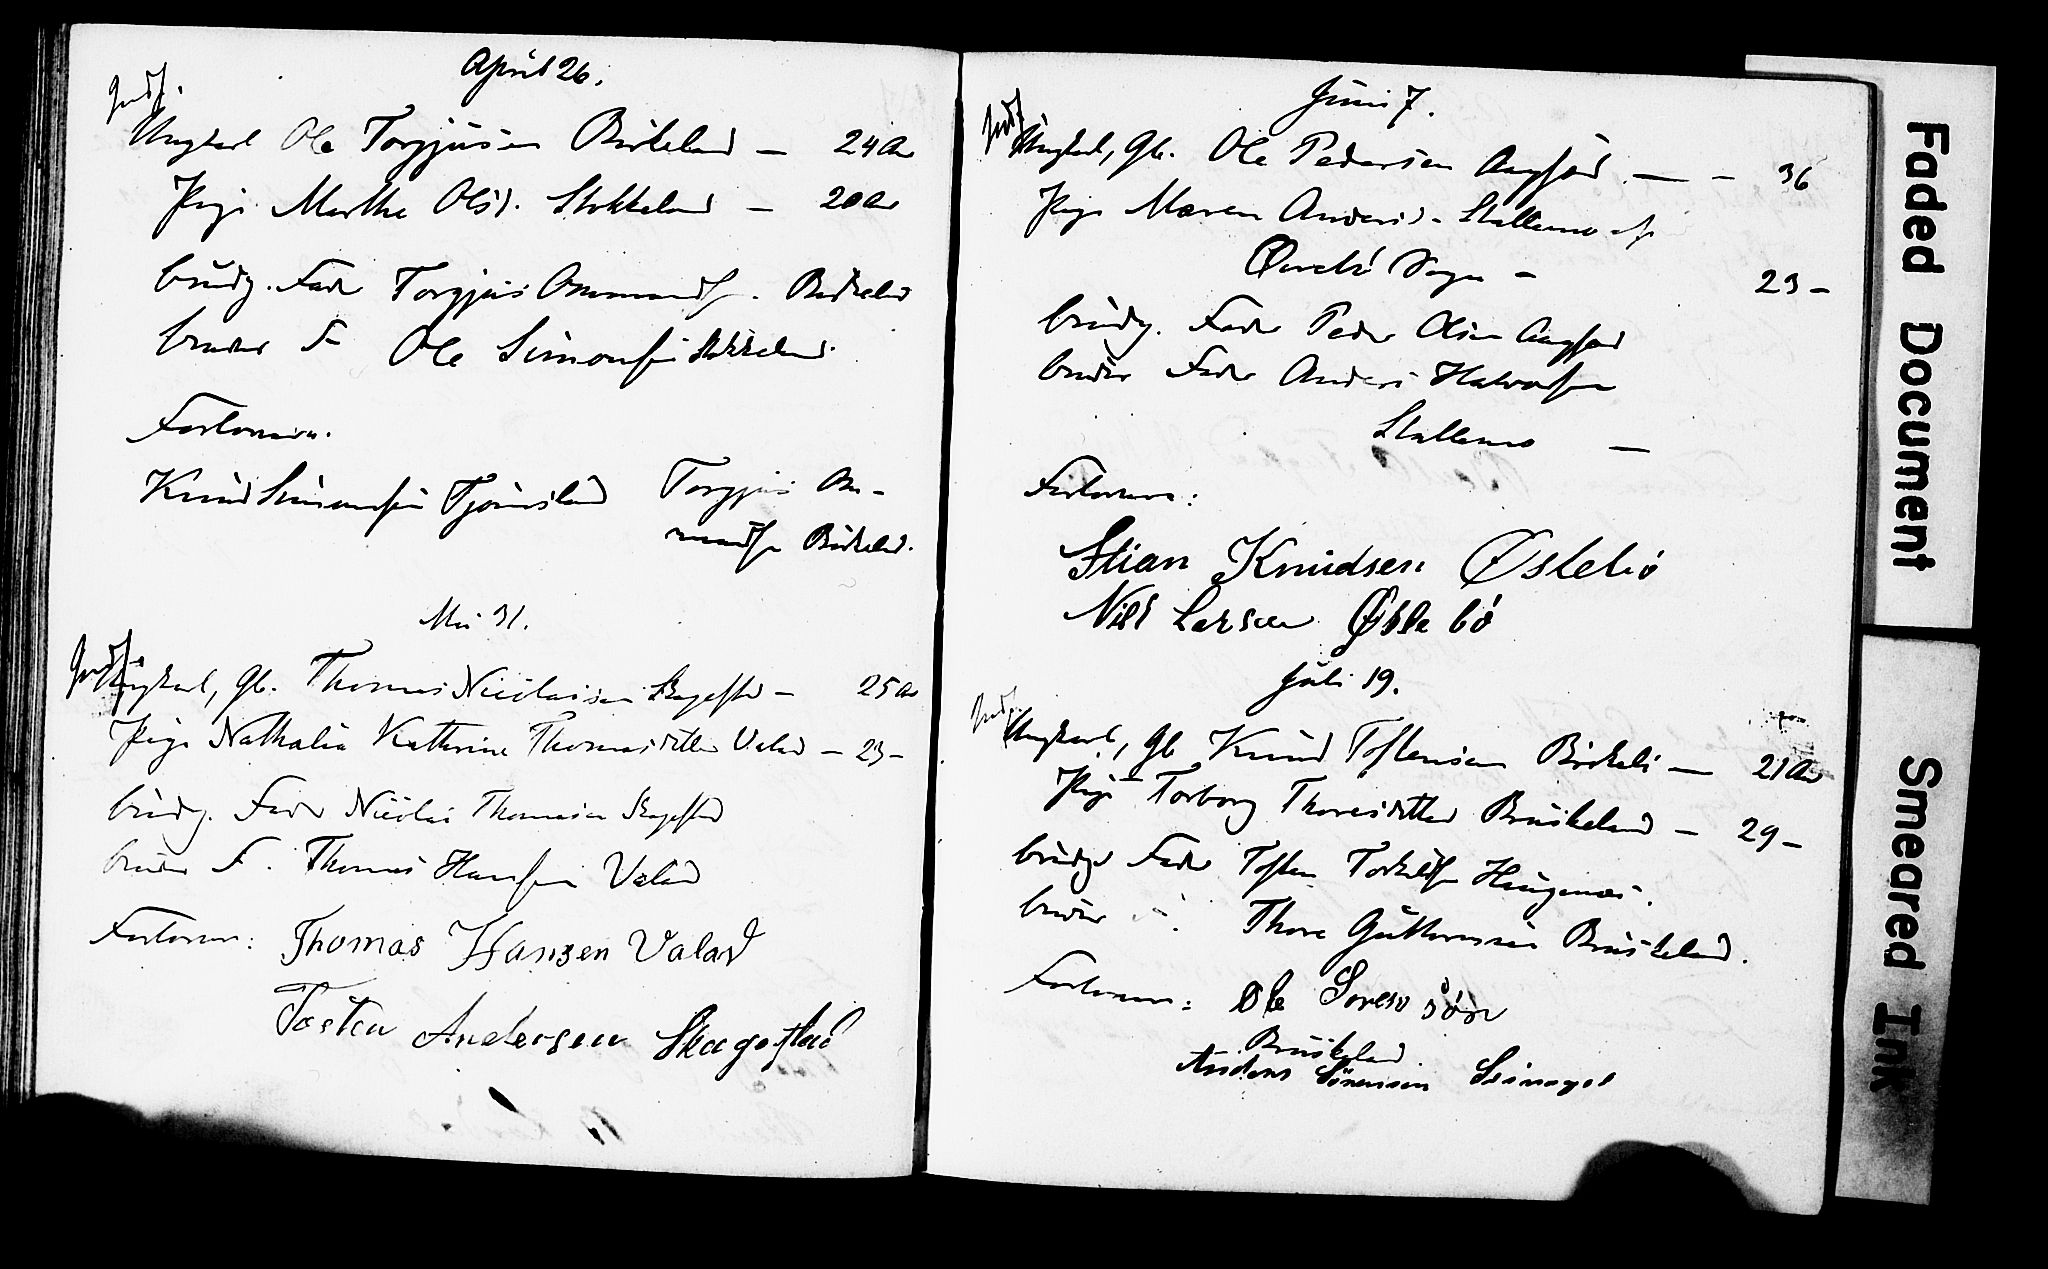 April 26.
Indf.
Ungkarl Ole Torgjusen Birkeland – 24 Aar
Pige Marthe Olsd. Stokkeland – 20 Aar
brudg. Fader Torgjus Ommundss. Birkeland
brudens F Ole Simonsen Stokkeland.
Forlovere.
Knud Simonsen Tjomsland Torgjus Om-
mundsen Birkeland.
Mai 31.
Indf.
Ungkarl, Gb. Thomas Nicolaisen Skagestad – 25 Aar
Pige Nathalia Kathrine Thomasdatter Valand – 23 –
brudg. Fader Nicolai Thomasen Skagestad
brudens F. Thomas Hansen Valand
Forlovere: Thomas Hansen Valand
Tosten Andersen Skagestad
Juni 7.
Indf
Ungkarl, Gb. Ole Pedersen – – 36
Pige Maren Andersd. Stallemo af
Øvrebø Sogn – 23 –
brudg. Fader Peder Olsen
brudens Fader Anders Halvorsen
Stallemo –
Forlovere:
Stian Knudsen Østebø
Nils Larsen Østebø
Juli 19.
Indf.
Ungkarl, Gb Knud Toftensen – 21 Aar
Pige Torborg Thoresdatter Bruskeland – 29 –
brudgs Fader Tosten Torkelsen Haugenæs.
brudens – Thore Guttormsen Bruskeland.
Forlovere: Ole Soren søn
Bruskeland
Anders Sörensen
Faded Document
Smeared Ink